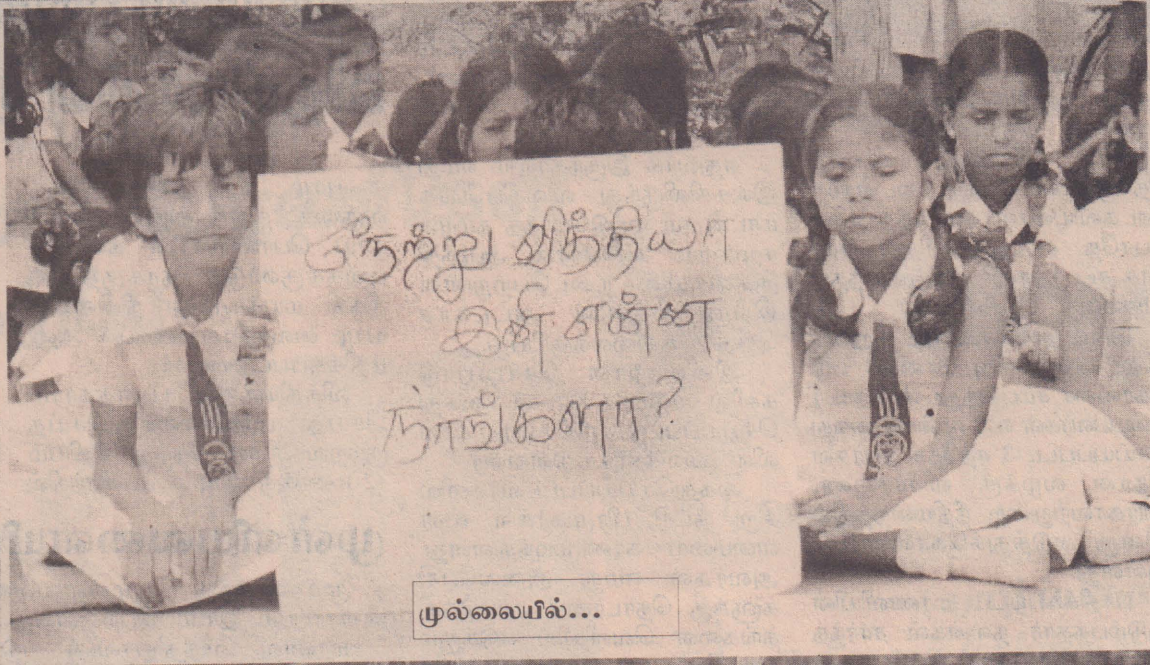 நேற்று வித்தியா
இனி என்ன
நாங்களா?
முல்லையில்...